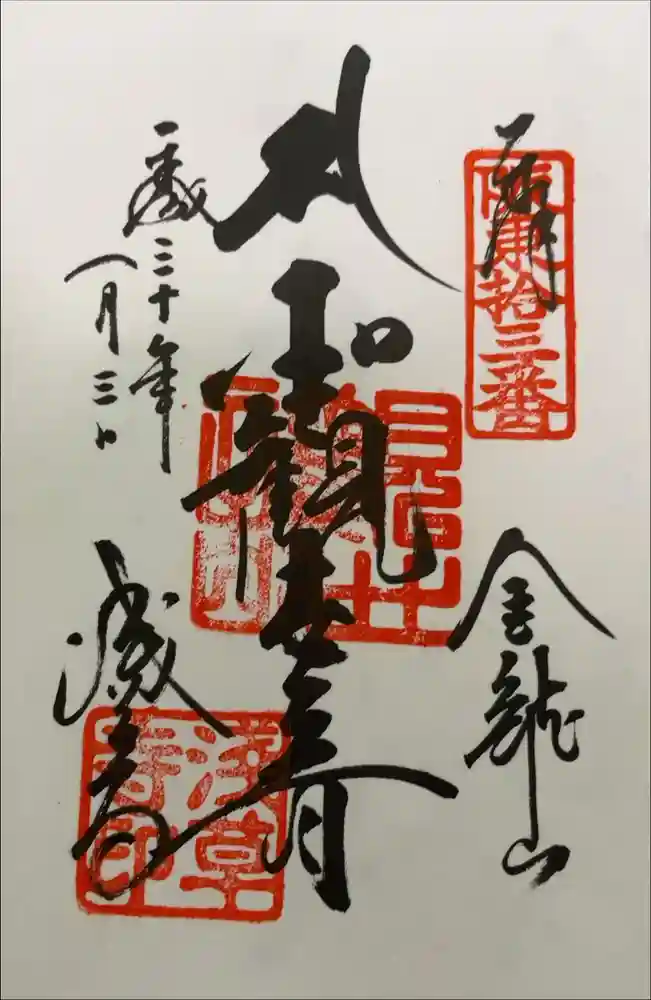 奉拝
坂東拾三番
金龍山
聖観世音
平成三十年
八月三日
浅草寺
浅草寺印